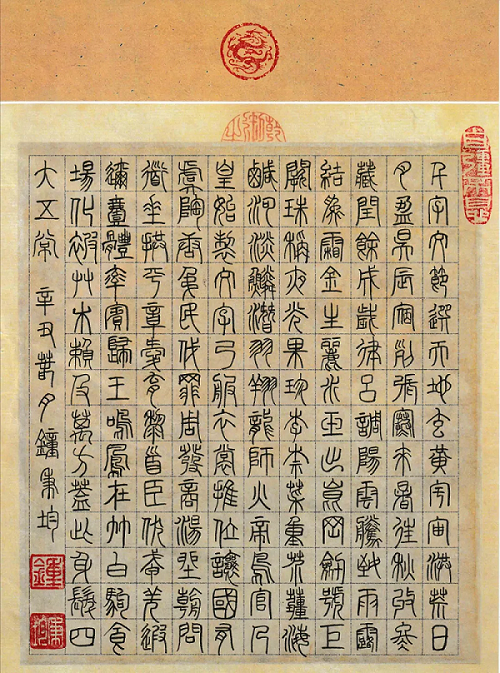 千字文節選天地玄黃宇宙洪荒日
月盈昃辰宿列張寒來暑往秋收冬
藏閏餘成歲律呂調陽雲騰致雨露
結為霜金生麗水玉出崑岡劍號巨
闕珠稱夜光果珍李柰菜重芥薑海
鹹河淡鱗潛羽翔龍師火帝鳥官人
皇始製文字乃服衣裳推位讓國有
虞陶唐弔民伐罪周發商湯坐朝問
道垂拱平章愛育黎首臣伏戎羌遐
邇壹體率賓歸王鳴鳳在竹白駒食
場化被艸木賴及萬方蓋此身髮四
大五常 辛丑 月 鐘秉均